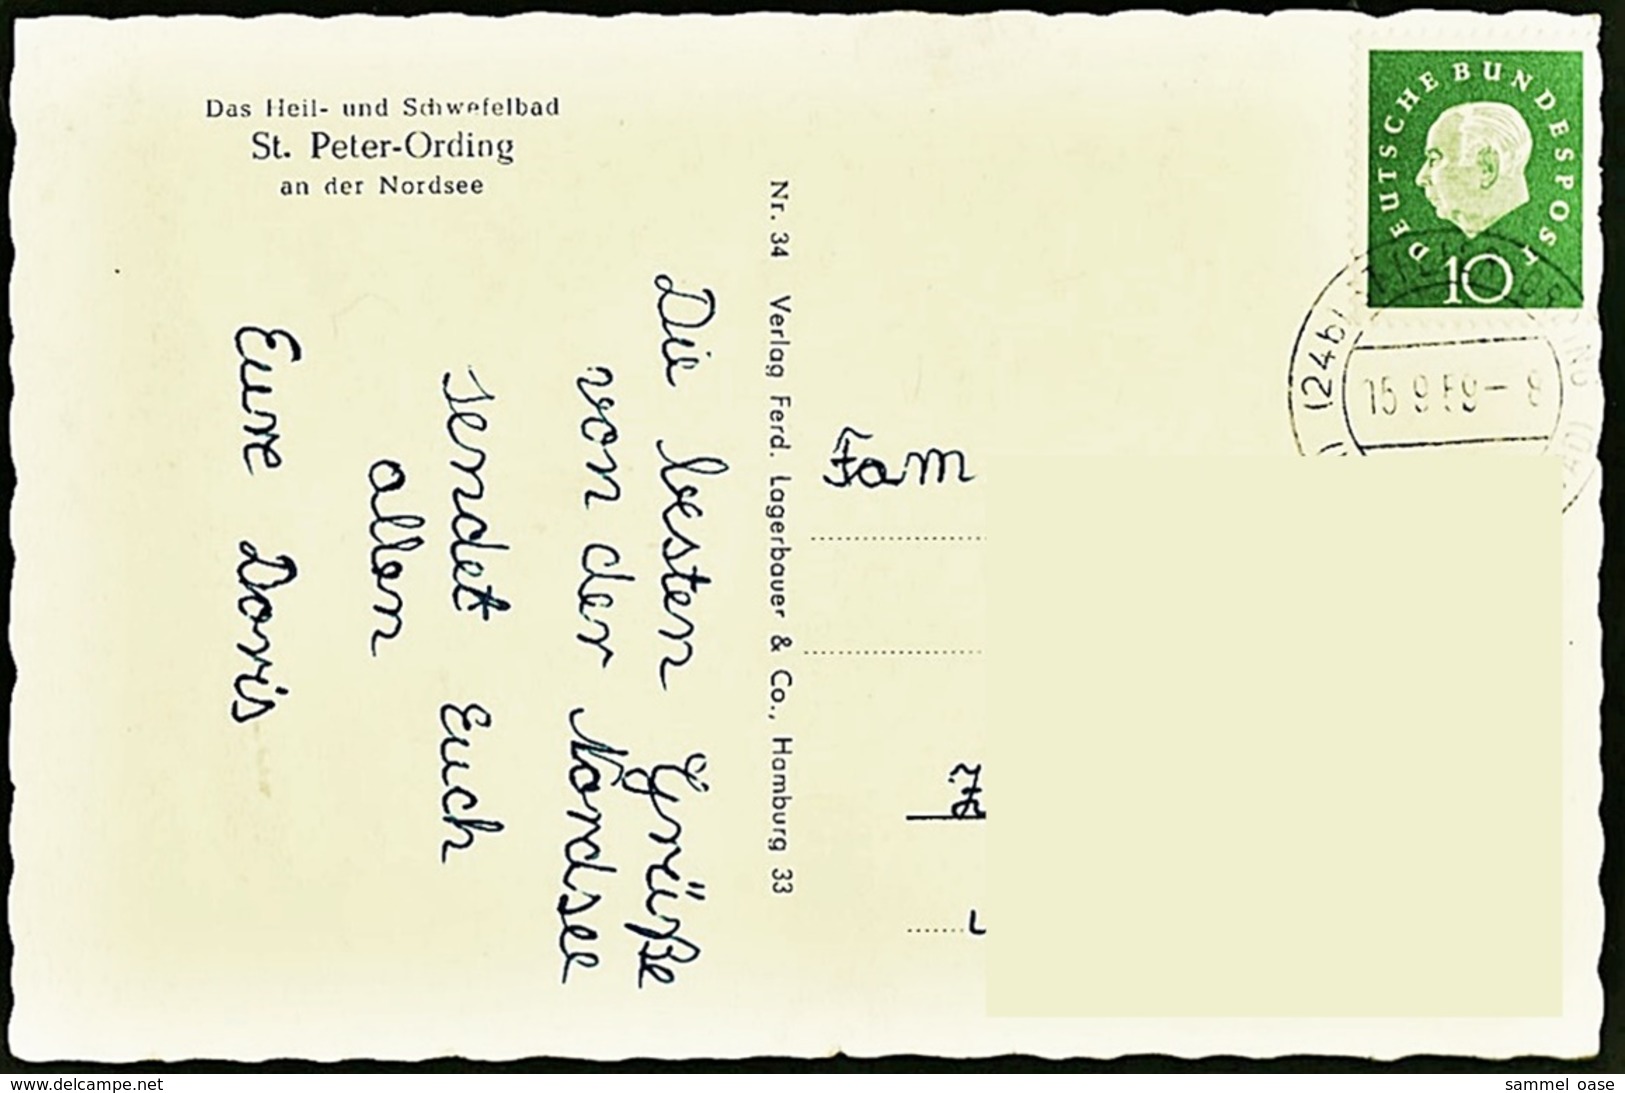 Das Heil- und Schwefelbad
St. Peter-Ording
an der Nordsee
Die besten Grüße
von der Nordsee
sendet Euch
allen
Eure Doris
Nr. 34 Verlag Ferd. Lagerbauer & Co., Hamburg 33
Fam
DEUTSCHE BUNDESPOST
10
(24b)
15.9.59-8
www.delcampe.net
sammel oase